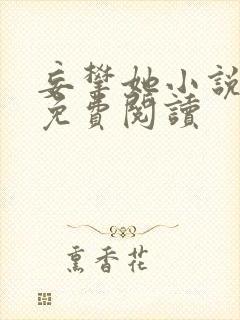 妄攀她小說
免費閱讀
熏香花